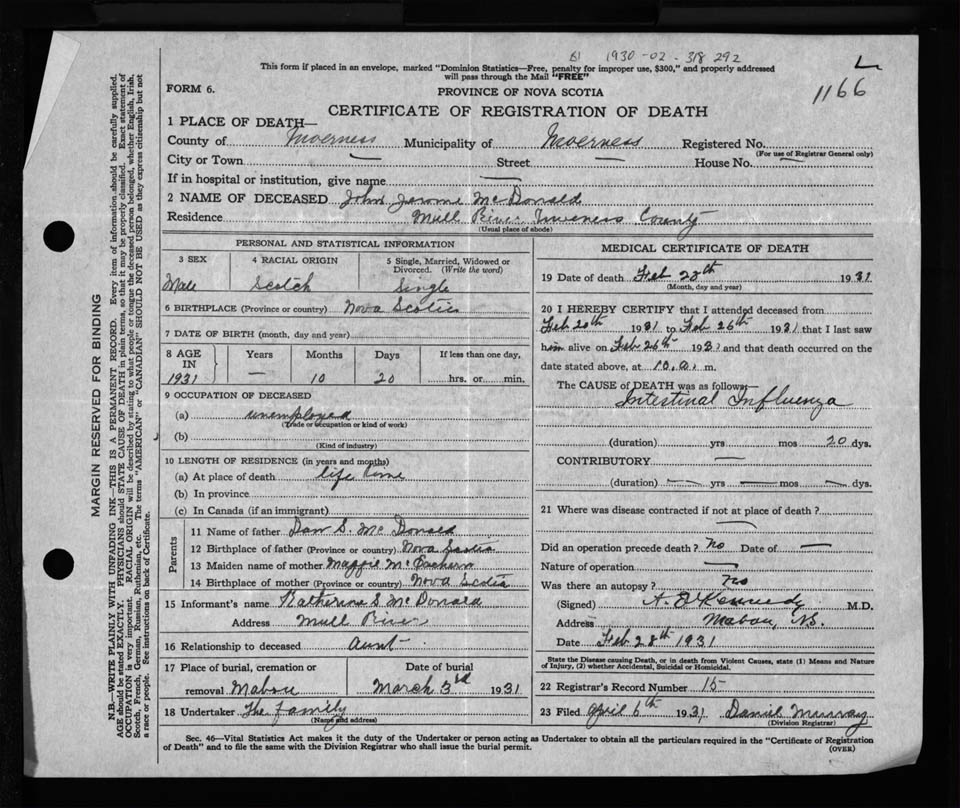 1930-02-318292
1166
This form if placed in an envelope, marked "Dominion Statistics—Free, penalty for improper use, $300," and properly addressed
will pass through the Mail "FREE"
FORM 6.
PROVINCE OF NOVA SCOTIA
CERTIFICATE OF REGISTRATION OF DEATH
1 PLACE OF DEATH—
County of Inverness Municipality of Inverness Registered No.
(For use of Registrar General only)
City or Town — Street — House No. —
If in hospital or institution, give name —
2 NAME OF DECEASED John Jerome McDonald
Residence Mull River Inverness County
(Usual place of abode)
PERSONAL AND STATISTICAL INFORMATION
3 SEX 4 RACIAL ORIGIN 5 Single, Married, Widowed or
Divorced. (Write the word)
Male Scotch Single
6 BIRTHPLACE (Province or country) Nova Scotia
7 DATE OF BIRTH (month, day and year)
8 AGE Years Months Days If less than one day,
IN
1931 — 10 20 hrs. or min.
9 OCCUPATION OF DECEASED
(a) unemployed
(Trade or occupation or kind of work)
(b)
(Kind of industry)
10 LENGTH OF RESIDENCE (in years and months)
(a) At place of death life time
(b) In province
(c) In Canada (if an immigrant)
Parents
11 Name of father Dan S. McDonald
12 Birthplace of father (Province or country) Nova Scotia
13 Maiden name of mother Maggie McEachern
14 Birthplace of mother (Province or country) Nova Scotia
15 Informant's name Katherine S McDonald
Address Mull River
16 Relationship to deceased Aunt
17 Place of burial, cremation or Date of burial
removal Mabou March 3rd 1931
18 Undertaker The family
(Name and address)
MEDICAL CERTIFICATE OF DEATH
19 Date of death Feb 28th 1931
(Month, day and year)
20 I HEREBY CERTIFY that I attended deceased from
Feb 20th 1931 to Feb 26th 1931 that I last saw
him alive on Feb 26th 1931 and that death occurred on the
date stated above, at 10.a. m.
The CAUSE of DEATH was as follows
Intestinal Influenza
(duration) yrs mos 20 dys.
CONTRIBUTORY —
(duration) — yrs — mos — dys.
21 Where was disease contracted if not at place of death?
—
Did an operation precede death? No Date of —
Nature of operation —
Was there an autopsy? No
(Signed) A. E Kennedy M.D.
Address Mabou, N.S.
Date Feb 28th 1931
State the Disease causing Death, or in death from Violent Causes, state (1) Means and Nature
of Injury, (2) whether Accidental, Suicidal or Homicidal.
22 Registrar's Record Number 15
23 Filed April 6th 1931 Daniel Murray
(Division Registrar)
Sec. 46—Vital Statistics Act makes it the duty of the Undertaker or person acting as Undertaker to obtain all the particulars required in the "Certificate of Registration
of Death" and to file the same with the Division Registrar who shall issue the burial permit.
(OVER)
MARGIN RESERVED FOR BINDING
N.B.—WRITE PLAINLY WITH UNFADING INK—THIS IS A PERMANENT RECORD. Every item of information should be carefully supplied.
AGE should be stated EXACTLY. PHYSICIANS should STATE CAUSE OF DEATH in plain terms, so that it may be properly classified. Exact statement of
OCCUPATION is very important. RACIAL ORIGIN will be described by stating to what people or tongue the deceased person belonged, whether English, Irish,
Scotch, French, German, Russian, Ruthenian, etc. The terms "AMERICAN" or "CANADIAN" SHOULD NOT BE USED as they express citizenship but not
a race or people. See instructions on back of Certificate.